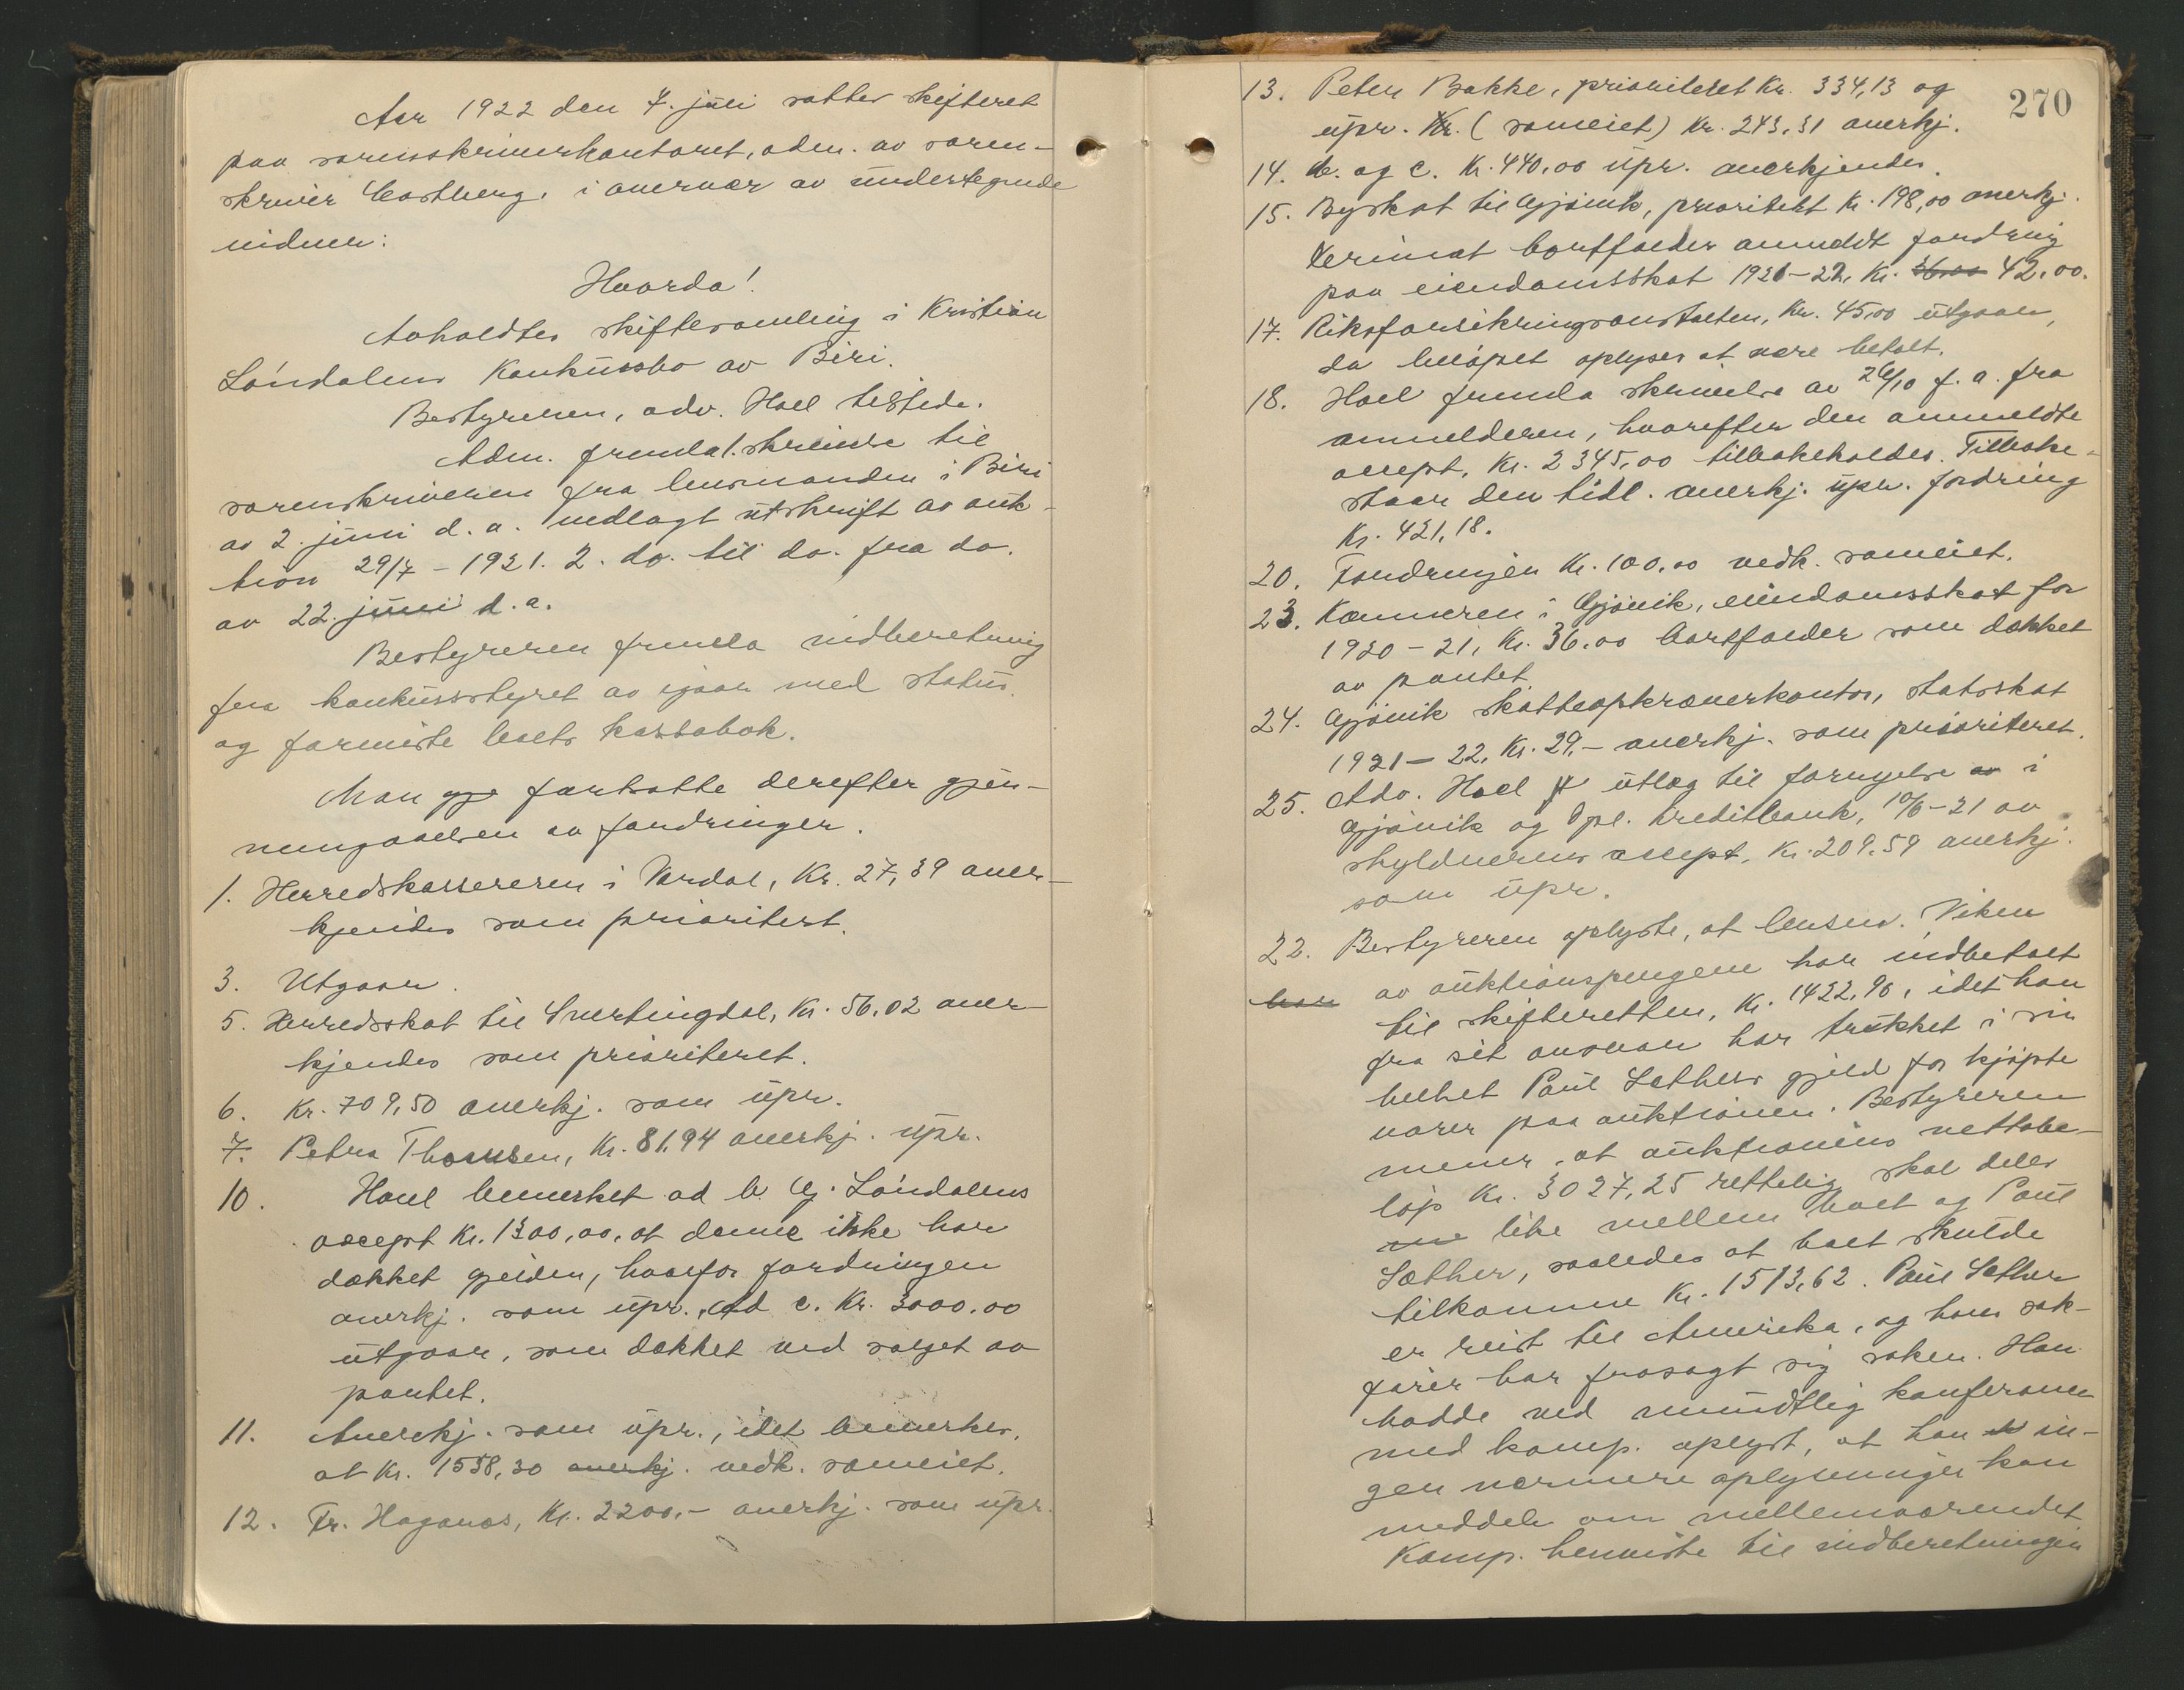 Aar 1922 den 7. juli sattes skifteret
paa sorenskriverkontoret, adm. av soren-
skriver Castberg, i overvær av undertegnede
vidner:
Hvorda!
Avholdtes skiftesamling i Kristian
Løndalens konkursbo av Biri.
Bestyreren, adv. Hoel tilstede.
Adm. fremla 1. skrivelse til
sorenskriveren fra lensmanden i Biri
av 2. juni d.a. vedlagt utskrift av auk-
tion 29/7 - 1921. 2. do. til do. fra do.
av 22. juni d.a.
Bestyreren fremla indberetning
fra konkursstyret av igaar med status
og foreviste boets kassabok.
Man gje fortsatte derefter gjen-
nemgaaelsen av fordringer.
1. Herredskassereren i Vardal, Kr. 27,39 aner-
kjendes som prioritert.
3. Utgaar.
5. Herredsskat til Snertingdal, Kr. 56,02 aner-
kjendes som prioriteret.
6. Kr. 709,50 anerkj. som upr.
7. Petra Thomsen, Kr. 81,94 anerkj. upr.
10. Hoel bemerket ad b. Gj. Løndalens
accept Kr. 1300,00, at denne ikke har
dækket gjelden, hvorfor fordringen
anerkj. som upr. Ad c. Kr. 3000.00
utgaar, som dækket ved salget av
pantet.
11. Anerkj. som upr., idet bemerkes,
at Kr. 1558,30 anerkj. vedk. sameiet.
12. Fr. Haganæs, Kr. 2200,- anerkj. som upr.
270
13. Peter Bakke, prioriteret Kr. 334,13 og
upr. Kr. (sameiet) Kr. 243,31 anerkj.
14. b. og c. Kr. 440,00 upr. anerkjendes.
15. Byskat til Gjøvik, prioritert Kr. 198,00 anerkj.
Derimot bortfalder anmeldt fordring
paa eiendomsskat 1921-22, Kr. 36.00 42,00.
17. Riksforsikringsanstalten, Kr. 45,00 utgaar,
da beløpet oplyses at være betalt.
18. Hoel fremla skrivelse av 26/10 f.a. fra
anmelderen, hvorefter den anmeldte
accept, Kr. 2345,00 tilbakeholdes. Tilbake-
staar den tidl. anerkj. upr. fordring
Kr. 421,18.
20. Fordringen Kr. 100,00 vedk. sameiet.
23. Kæmneren i Gjøvik, eiendomsskat for
1920-21, Kr. 36.00 bortfalder som dækket
av pantet.
24. Gjøvik skatteopkræverkontor, statsskat
1921-22, Kr. 29,- anerkj. som prioriteret.
25. Adv. Hoel utlæg til fornyelse av i
Gjøvik og Opl. Kreditbank, 10/6-21 av
skyldnerens accept, Kr. 209.59 anerkj.
som upr.
22. Bestyreren oplyste, at lensm. Viken
har av auktionspengene har indbetalt
til skifteretten, Kr. 1422,96, idet han
fra sit ansvar har trukket i sin
helhet Paul Sæthers gjeld for kjøpte
varer paa auktionen. Bestyreren
mener, at auktionens nettobe-
løp Kr. 3027,25 rettelig skal deles
like mellem boet og Paul
Sæther, saaledes at boet skulde
tilkomme Kr. 1513,62. Paul Sæther
er reist til Amerika, og hans sak-
fører har frasagt sig saken. Han
hadde ved mundtlig konferanse
med komp. oplyst, at han in-
gen nærmere oplysninger kan
meddele om mellemværendet
Komp. henviste til indberetningen